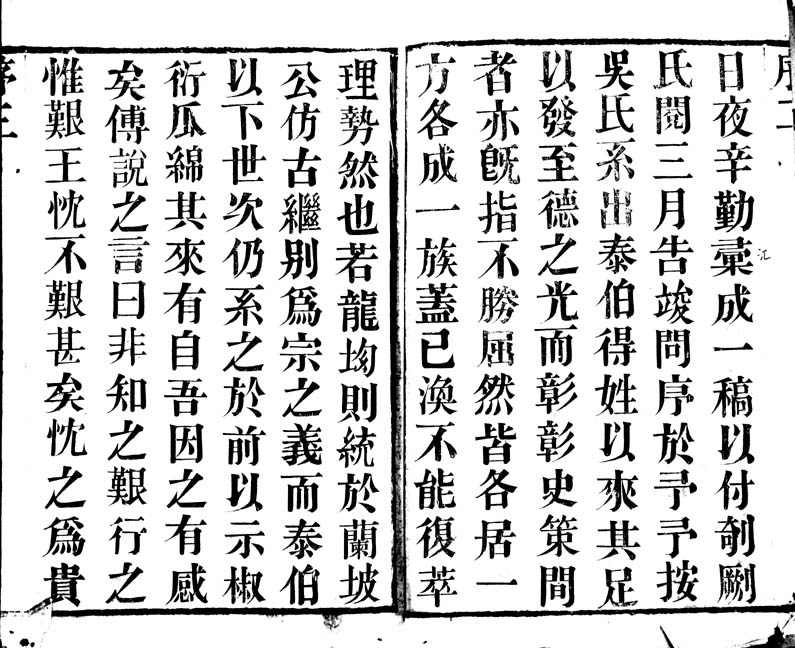 序二
日夜辛勤彙成一稿以付剞劂
氏閱三月告竣問序於予予按
吳氏系出泰伯得姓以來其足
以發至德之光而彰彰史策間
者亦旣指不勝屈然皆各居一
方各成一族蓋已渙不能復萃
理勢然也若龍均則統於蘭坡
公仿古繼别爲宗之義而泰伯
以下世次仍系之於前以示椒
衍瓜綿其來有自吾因之有感
矣傅說之言曰非知之艱行之
惟艱王忱不艱甚矣忱之爲貴
序三